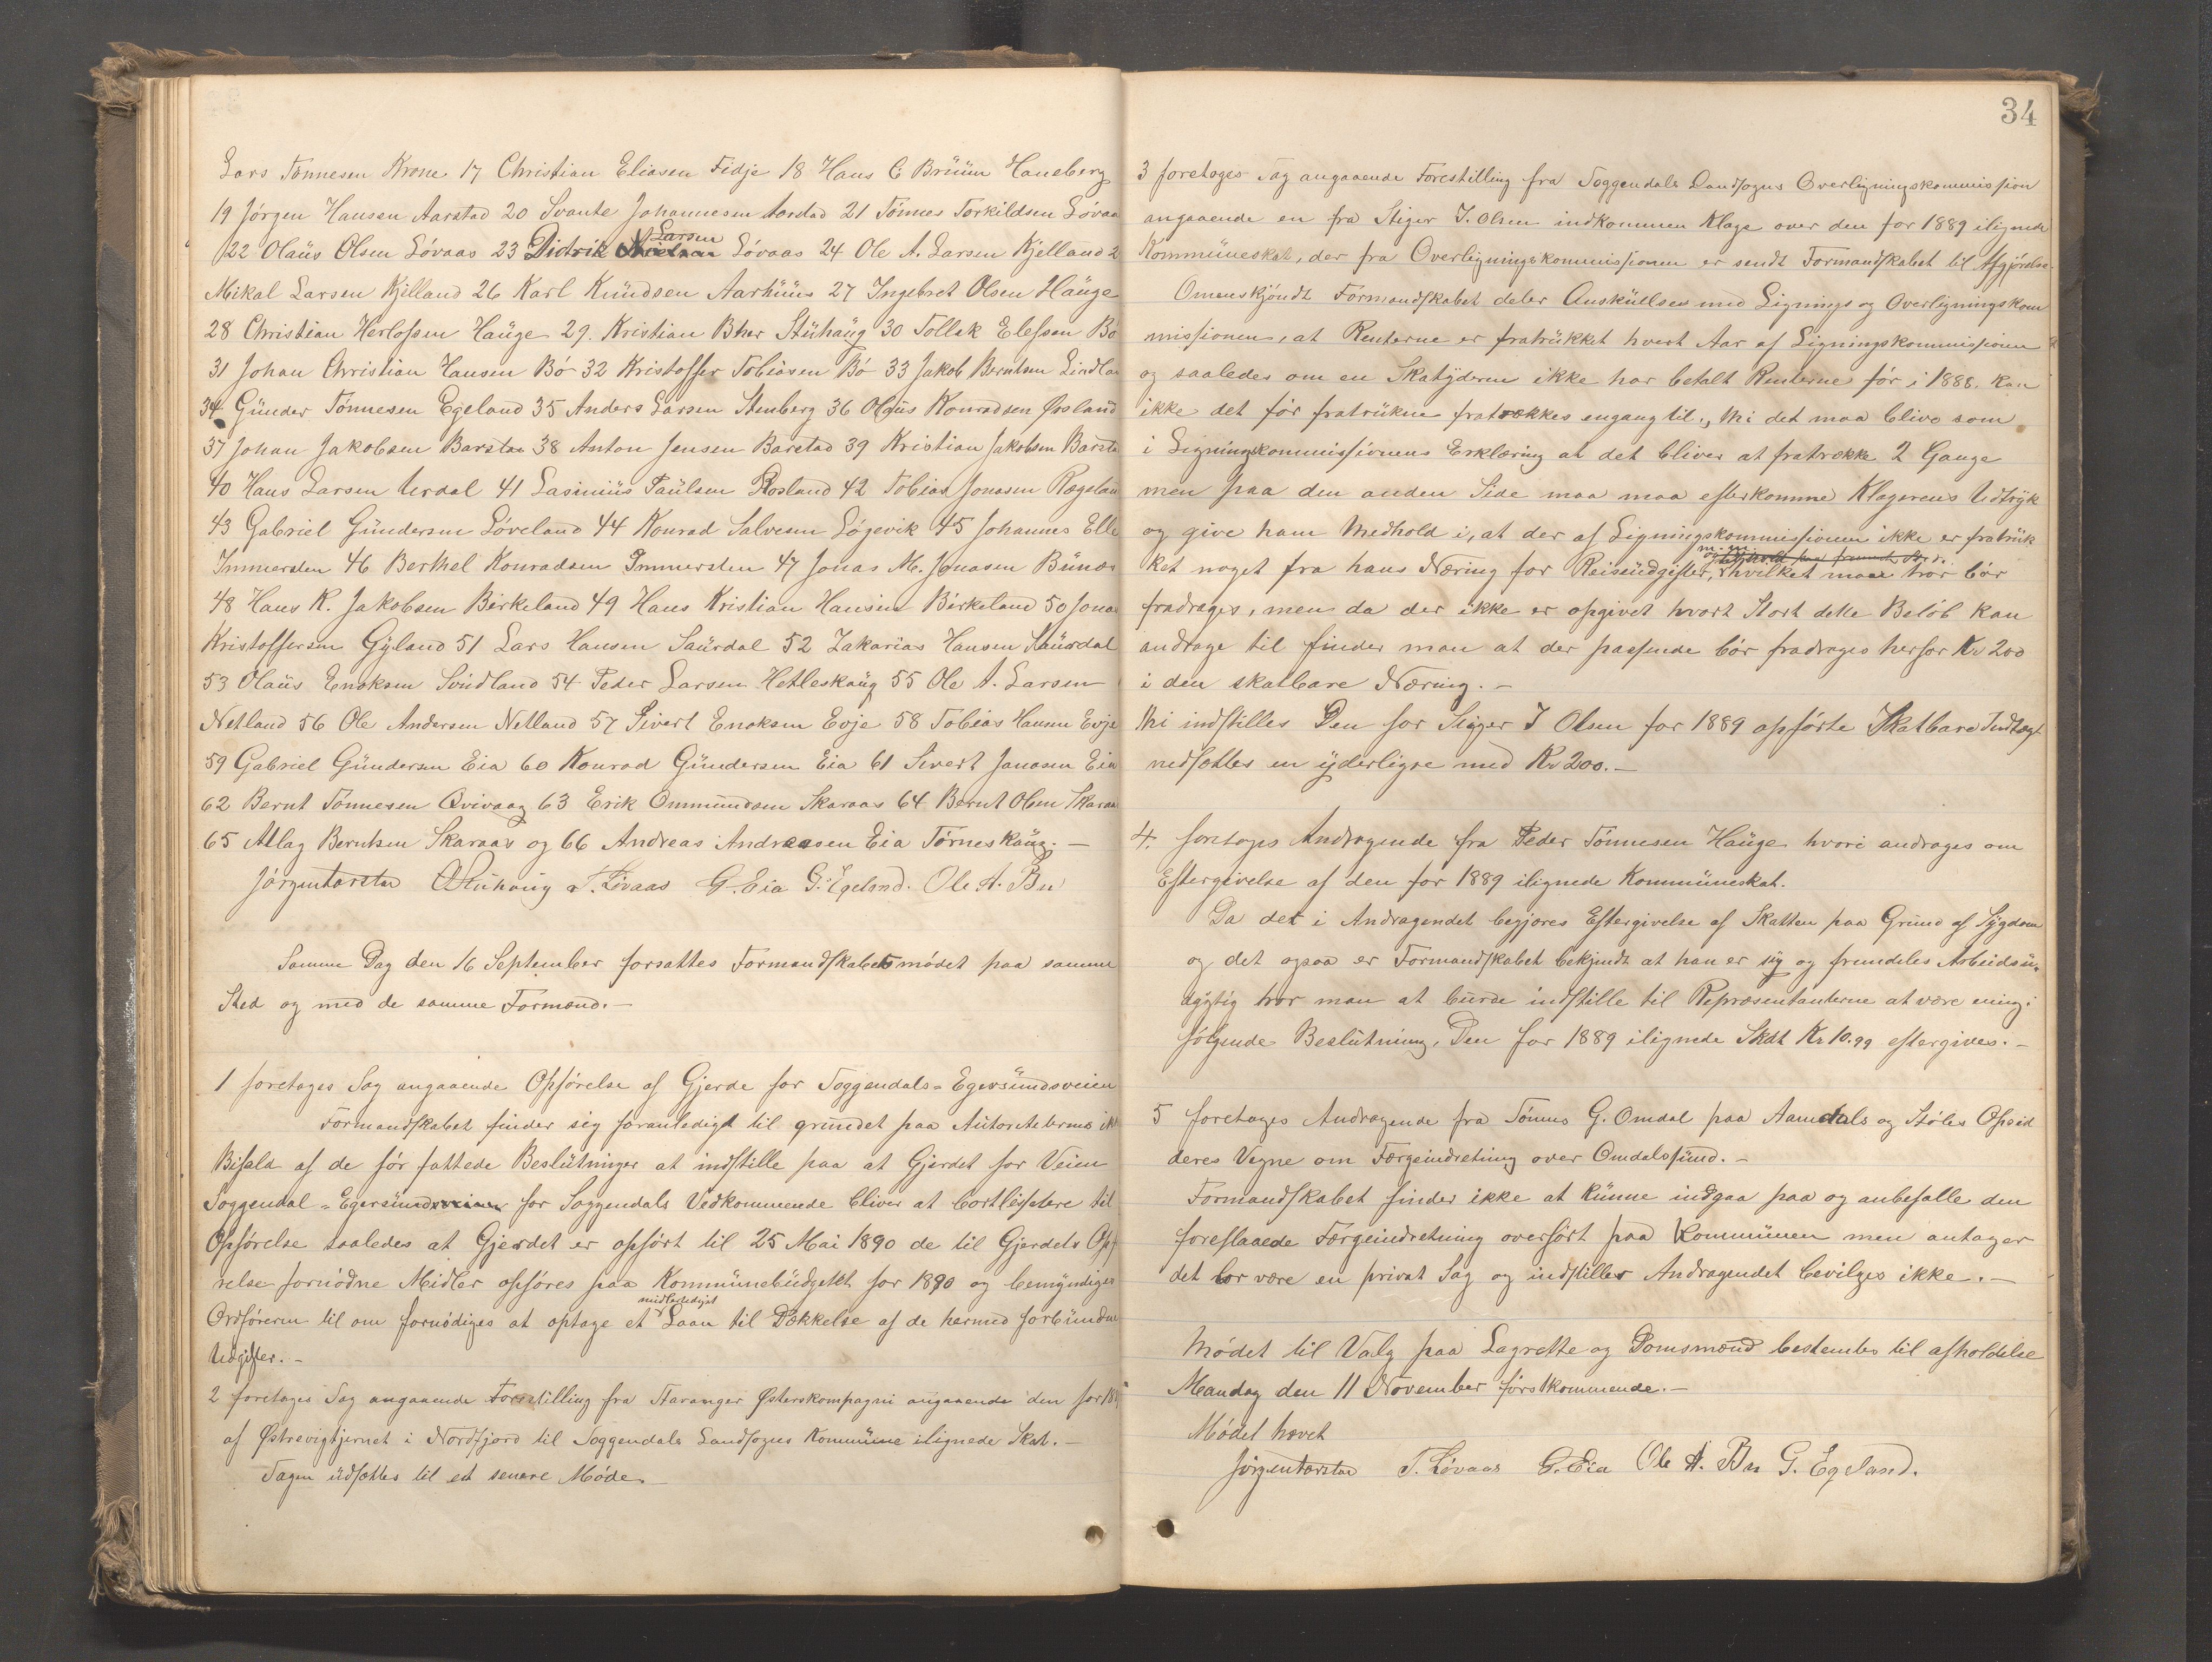 Lars Tønnesen Krone 17 Christian Eliasen Fidje 18 Hans C Bruun Haneberg
19 Jørgen Hansen Aarstad 20 Svante Johannesen Aarstad 21 Tønnes Torkildsen Løvaa
22 Olaus Olsen Løvaas 23 Didrik Larsen Løvaas 24 Ole A. Larsen Kjelland 2
Mikal Larsen Kjelland 26 Karl Knudsen Aarhuus 27 Ingebret Olsen Hauge
28 Christian Herlofsen Hauge 29. Kristian Bher Stuhaug 30 Tollak Elefsen Bø
31 Johan Christian Hansen Bø 32 Kristoffer Tobiasen Bø 33 Jakob Berntsen Lindla
34 Gunder Tønnesen Egeland 35 Anders Larsen Stenberg 36 Olaus Konradsen Øvsland
37 Johan Jakobsen Barstad 38 Anton Jensen Barstad 39 Kristian Jakobsen Barsta
40 Hans Larsen Urdal 41 Lasinius Paulsen Rosland 42 Tobias Jonasen Rægelan
43 Gabriel Gundersen Løveland 44 Konrad Salvesen Løgevik 45 Johannes Elle
Immersten 46 Berthel Konradsen Immersten 47 Jonas M. Jonasen Bunæs
48 Hans R. Jakobsen Birkeland 49 Hans Kristian Hansen Birkeland 50 Jona
Kristoffersen Gyland 51 Lars Hansen Saurdal 52 Zakarias Hansen Saurdal
53 Olaus Enoksen Svindland 54 Peder Larsen Hetleskaug 55 Ole A. Larsen
Netland 56 Ole Andersen Netland 57 Sivert Enoksen Evje 58 Tobias Hansen Evje
59 Gabriel Gundersen Eia 60 Konrad Gundersen Eia 61 Sivert Jonasen Eia
62 Bernt Tønnesen Qvivaag 63 Erik Ommundsen Skaraas 64 Bernt Olsen Skaraa
65 Atlag Berntsen Skaraas og 66 Andreas Andreasen Eia Tørneskaug. –
Jørgen Aarstad O Stuhaug T. Løvaas G. Eia G. Egeland. Ole A. Bø
Samme Dag den 16 September forsattes Formandskabetsmødet paa samme
Sted og med de samme Formænd. –
1 foretoges Sag angaaende Opførelse af Gjerde for Soggendals-Egersundsveien
Formandskabet finder sig foranlediget til grundet paa Autoriteternes ik
Bifald af de før fattede Beslutninger at indstille paa at Gjerdet for Veien
Soggendal-Egersund for Soggendals Vedkommende bliver at bortlicitere til
Opførelse saaledes at Gjerdet er opført til 25 Mai 1890 de til Gjerdets Opf
relse fornødne Midler opføres paa Kommunebudgettet for 1890 og bemyndiges
midlertidigt
Ordføreren til om fornødiges at optage et Laan til Dækkelse af de hermed forbundne
Udgifter. –
2 foretoges Sag angaaende Forestilling fra Stavanger Østerskompagni angaaende den for 188
af Østrevigtjernet i Nordfjord til Soggendals Landsogns Kommune ilignede Skat. –
Sagen udsættes til et senere Møde. –
34
3 foretoges Sag angaaende Forestilling fra Soggendals Landsogns Overligningskommission
angaaende en fra Stiger J. Olsen indkommen Klage over den for 1889 ilignede
Kommuneskat, der fra Overligningskommissionen er sendt Formandskabet til Afgjørelse.
Omenskjøndt Formandskabet deler Anskuelser med Lignings og Overligningskom
missionen, at Renterne er fratrukket hvert Aar af Ligningskommissionen
og saaledes om en Skatyderen ikke har betalt Renterne før i 1888. kan
ikke det før fratrukne fratrækkes engang til., thi det maa blive som
i Ligningskommissionens Erklæring at det bliver at fratrække 2 Gange
men paa den anden Side maa maa efterkomme Klagerens Udtryk
og give ham Medhold i, at der af Ligningskommissionen ikke er fratruk
ket noget fra hans Næring for Reiseudgifter, hvilket man tror bør
fradrages, men da der ikke er opgivet hvort Stort dette Beløb kan
andrage til finder man at der passende bør fradrages herfor Kr 200
i den skatbare Næring. –
Thi indstilles Den for Stiger J Olsen for 1889 opførte Skatbare Indtægt
nedsættes en yderligere med Kr 200. –
4. foretoges Andragende fra Peder Tønnesen Hauge hvori andrages om
Eftergivelse af den for 1889 ilignede Kommuneskat.
Da det i Andragendet begjøres Eftergivelse af Skatten paa Grund af Sygdom
og det ogsaa er Formandskabet bekjendt at han er syg og fremdeles Arbeidsu-
dygtig tror man at burde indstille til Repræsentanterne at være enig i
følgende Beslutning. Den for 1889 ilignede Skat Kr 10.99 eftergives. –
5 foretoges Andragende fra Tønnes G. Omdal paa Aamdals og Støles Opsid
deres Vegne om Færgeindretning over Omdalssund. –
Formandskabet finder ikke at kunne indgaa paa og anbefalle den
foreslaaede Færgeindretning overført paa Kommunen men antager
det bør være en privat Sag og indstilles Andragendet bevilges ikke. –
Mødet til Valg paa Lagrette og Domsmænd bestemtes til afholdelse
Mandag den 11 November førstkommende. –
Mødet hævet
Jørgen Aarstad T. Løvaas G. Eia Ole A. Bø G. Egeland.